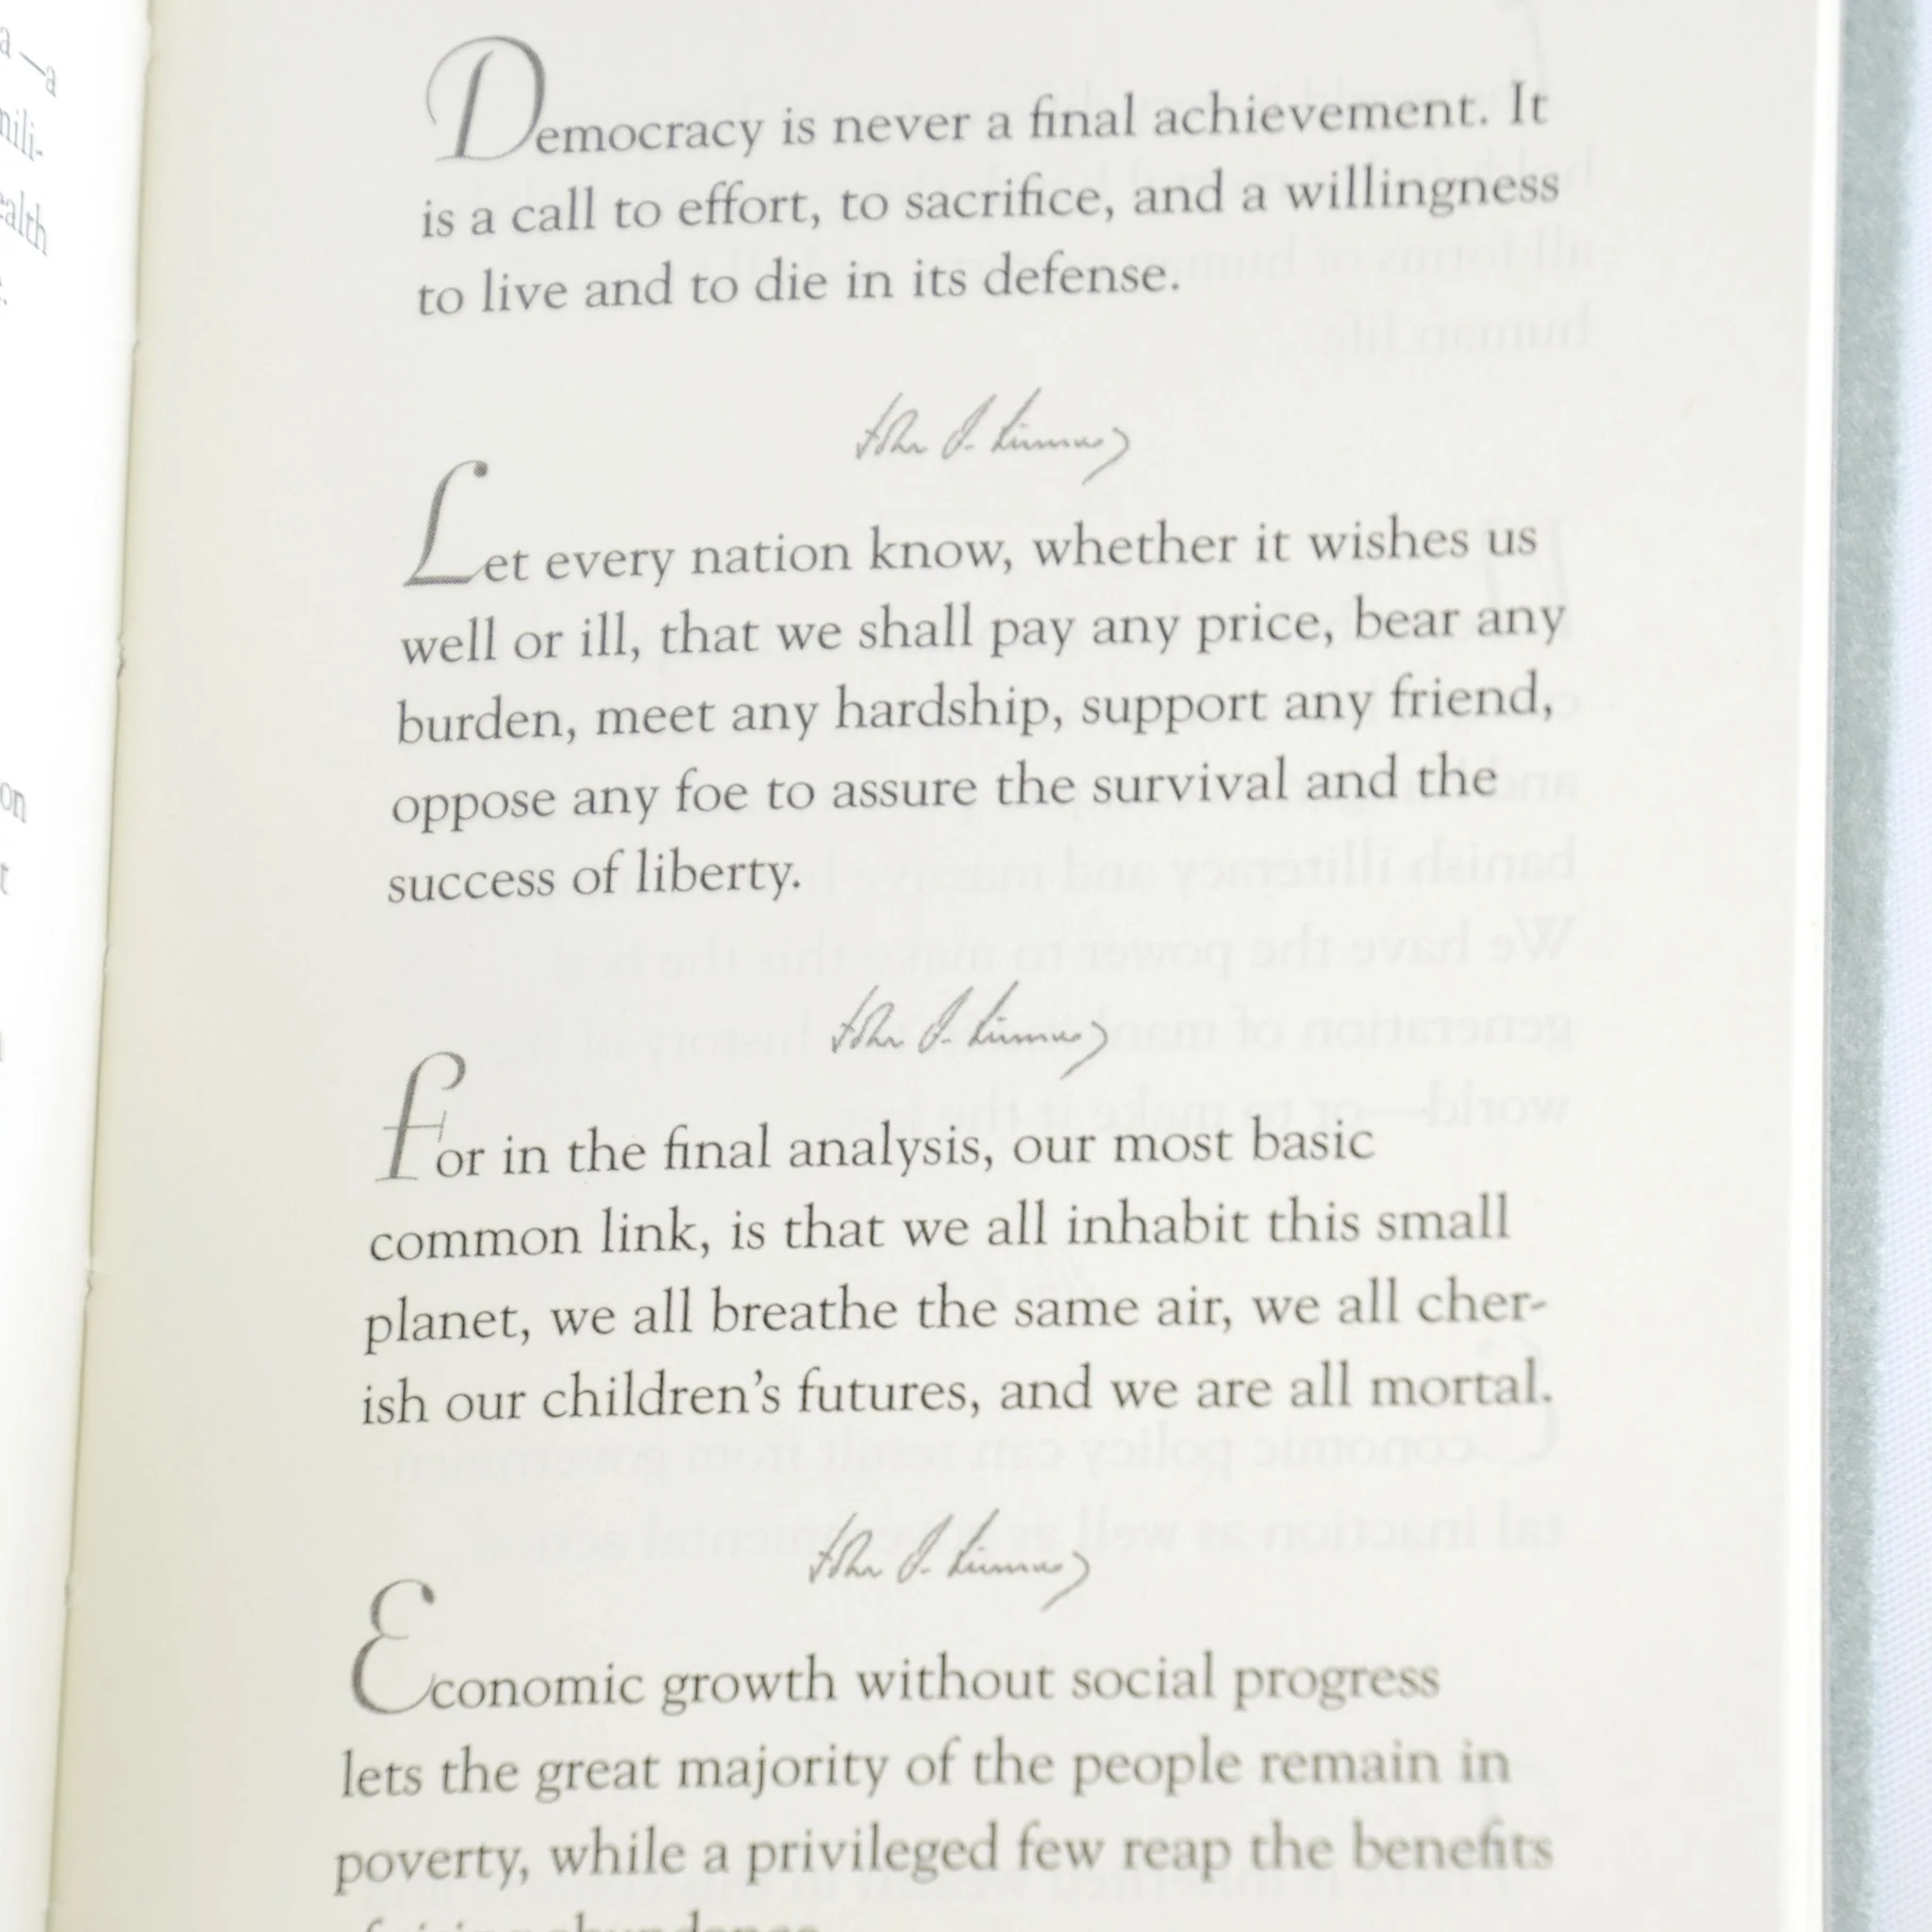 Democracy is never a final achievement. It
is a call to effort, to sacrifice, and a willingness
to live and to die in its defense.
John F. Kennedy
Let every nation know, whether it wishes us
well or ill, that we shall pay any price, bear any
burden, meet any hardship, support any friend,
oppose any foe to assure the survival and the
success of liberty.
John F. Kennedy
For in the final analysis, our most basic
common link, is that we all inhabit this small
planet, we all breathe the same air, we all cher-
ish our children's futures, and we are all mortal.
John F. Kennedy
Economic growth without social progress
lets the great majority of the people remain in
poverty, while a privileged few reap the benefits